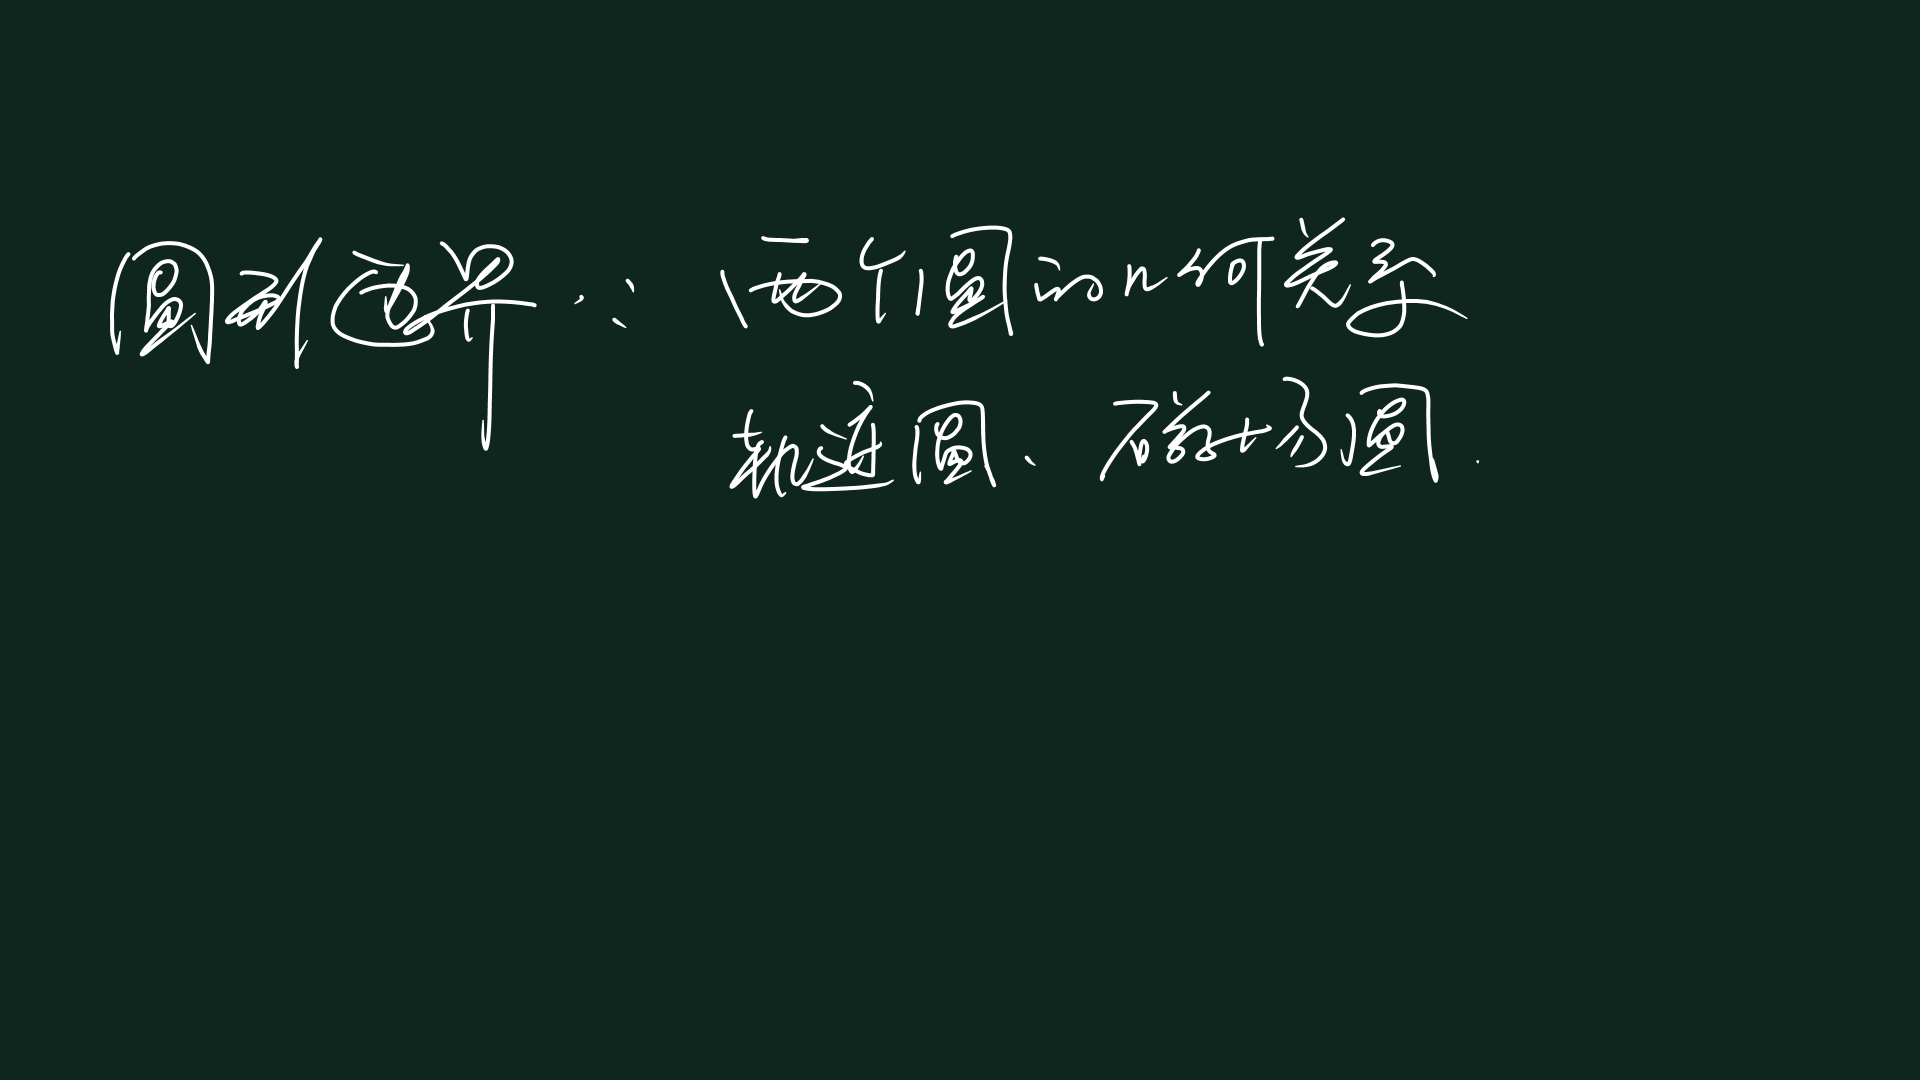 圆形边界：两个圆的几何关系
轨迹圆、磁场圆.